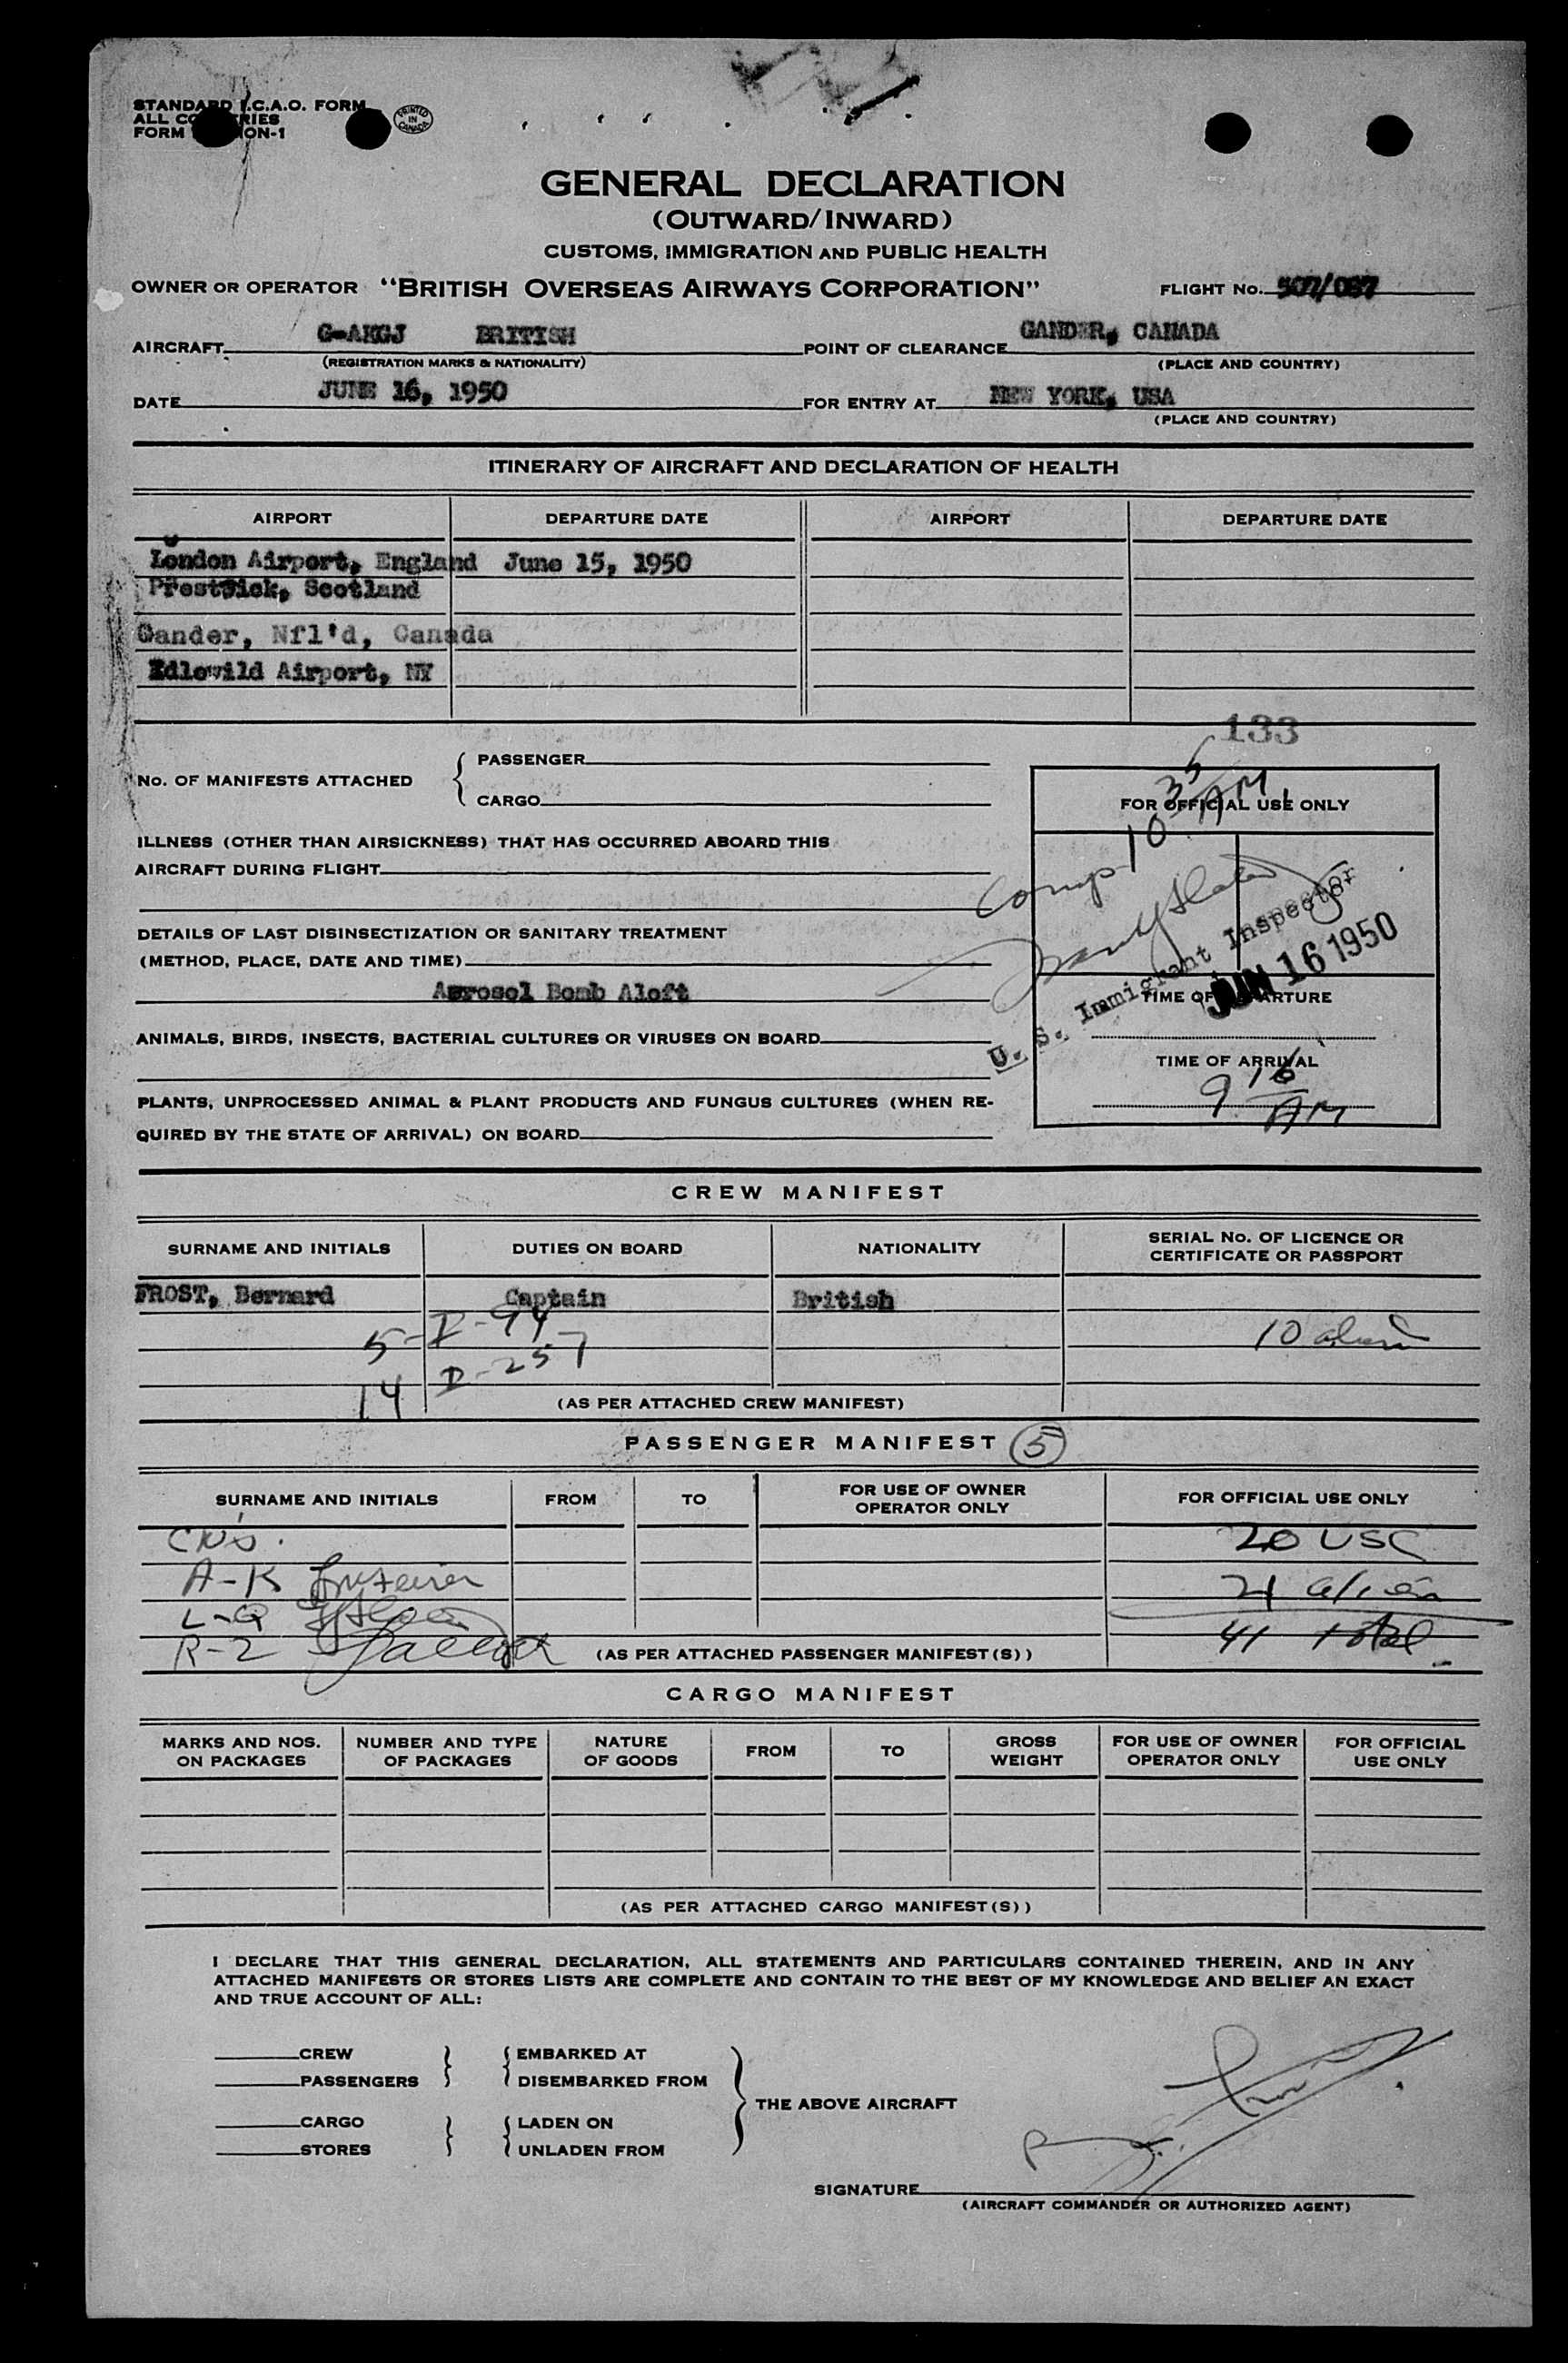 STANDARD I.C.A.O. FORM
ALL COUNTRIES
FORM ION-1
PRINTED IN CANADA
GENERAL DECLARATION
(OUTWARD/INWARD)
CUSTOMS, IMMIGRATION AND PUBLIC HEALTH
OWNER OR OPERATOR "BRITISH OVERSEAS AIRWAYS CORPORATION" FLIGHT No. 507/087
AIRCRAFT G-AKGJ BRITISH POINT OF CLEARANCE GANDER, CANADA
(REGISTRATION MARKS & NATIONALITY) (PLACE AND COUNTRY)
DATE JUNE 16, 1950 FOR ENTRY AT NEW YORK, USA
(PLACE AND COUNTRY)
ITINERARY OF AIRCRAFT AND DECLARATION OF HEALTH
AIRPORT DEPARTURE DATE AIRPORT DEPARTURE DATE
London Airport, England June 15, 1950
Prestwick, Scotland
Gander, Nfl'd, Canada
Idlewild Airport, NY
133
No. OF MANIFESTS ATTACHED { PASSENGER
CARGO
FOR OFFICIAL USE ONLY
Comp 10 35 AM
ILLNESS (OTHER THAN AIRSICKNESS) THAT HAS OCCURRED ABOARD THIS
AIRCRAFT DURING FLIGHT
U. S. Immigrant Inspector
JUN 16 1950
DETAILS OF LAST DISINSECTIZATION OR SANITARY TREATMENT
(METHOD, PLACE, DATE AND TIME)
Aerosol Bomb Aloft
TIME OF DEPARTURE
ANIMALS, BIRDS, INSECTS, BACTERIAL CULTURES OR VIRUSES ON BOARD
TIME OF ARRIVAL
9 16 AM
PLANTS, UNPROCESSED ANIMAL & PLANT PRODUCTS AND FUNGUS CULTURES (WHEN RE-
QUIRED BY THE STATE OF ARRIVAL) ON BOARD
CREW MANIFEST
SURNAME AND INITIALS DUTIES ON BOARD NATIONALITY SERIAL No. OF LICENCE OR
CERTIFICATE OR PASSPORT
FROST, Bernard Captain British
5-I-94 10
14 I-257
(AS PER ATTACHED CREW MANIFEST)
PASSENGER MANIFEST 5
SURNAME AND INITIALS FROM TO FOR USE OF OWNER
OPERATOR ONLY FOR OFFICIAL USE ONLY
20 USC
A-K 21 alien
L-Q
R-Z 41 total
(AS PER ATTACHED PASSENGER MANIFEST(S))
CARGO MANIFEST
MARKS AND NOS.
ON PACKAGES NUMBER AND TYPE
OF PACKAGES NATURE
OF GOODS FROM TO GROSS
WEIGHT FOR USE OF OWNER
OPERATOR ONLY FOR OFFICIAL
USE ONLY
(AS PER ATTACHED CARGO MANIFEST(S))
I DECLARE THAT THIS GENERAL DECLARATION, ALL STATEMENTS AND PARTICULARS CONTAINED THEREIN, AND IN ANY
ATTACHED MANIFESTS OR STORES LISTS ARE COMPLETE AND CONTAIN TO THE BEST OF MY KNOWLEDGE AND BELIEF AN EXACT
AND TRUE ACCOUNT OF ALL:
CREW } { EMBARKED AT
PASSENGERS } { DISEMBARKED FROM
THE ABOVE AIRCRAFT
CARGO } { LADEN ON
STORES } { UNLADEN FROM
SIGNATURE
(AIRCRAFT COMMANDER OR AUTHORIZED AGENT)